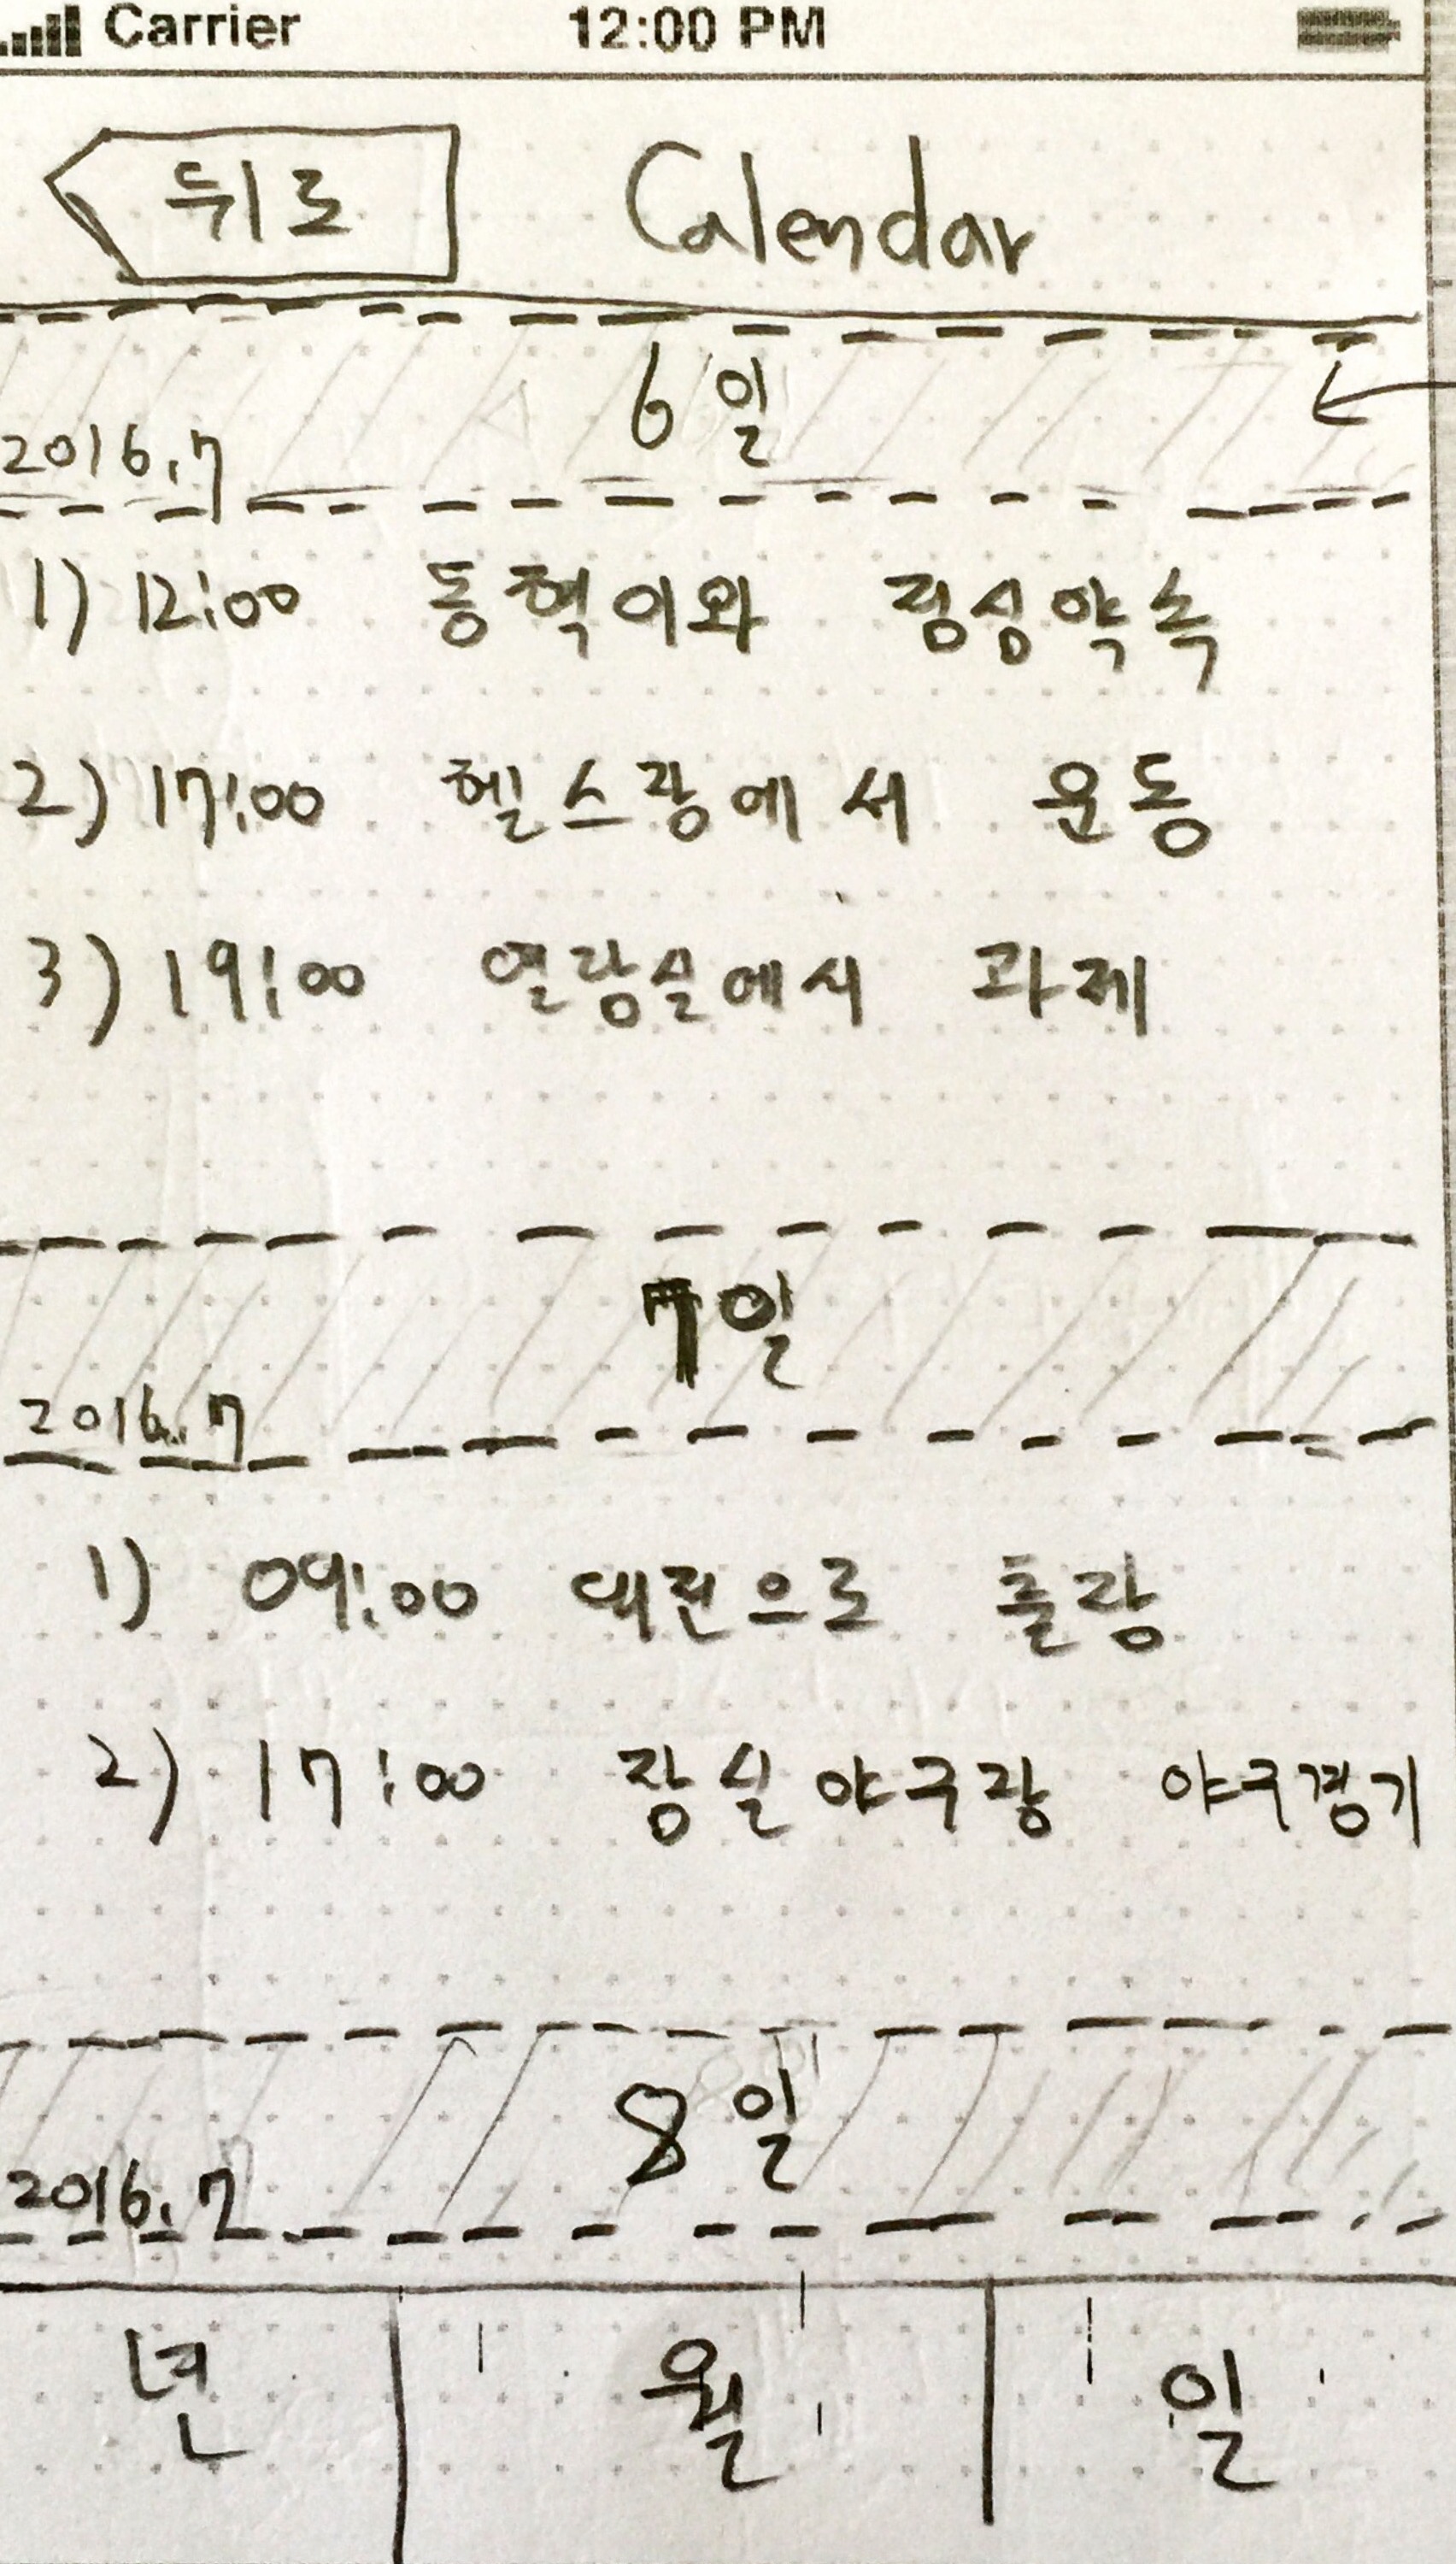 Carrier 12:00 PM
뒤로 Calendar
6일
2016.7
1) 12:00 동혁이와 점심약속
2) 17:00 헬스장에서 운동
3) 19:00 열람실에서 과제
7일
2016.7
1) 09:00 대전으로 출장
2) 17:00 잠실야구장 야구경기
8일
2016.7
년 월 일